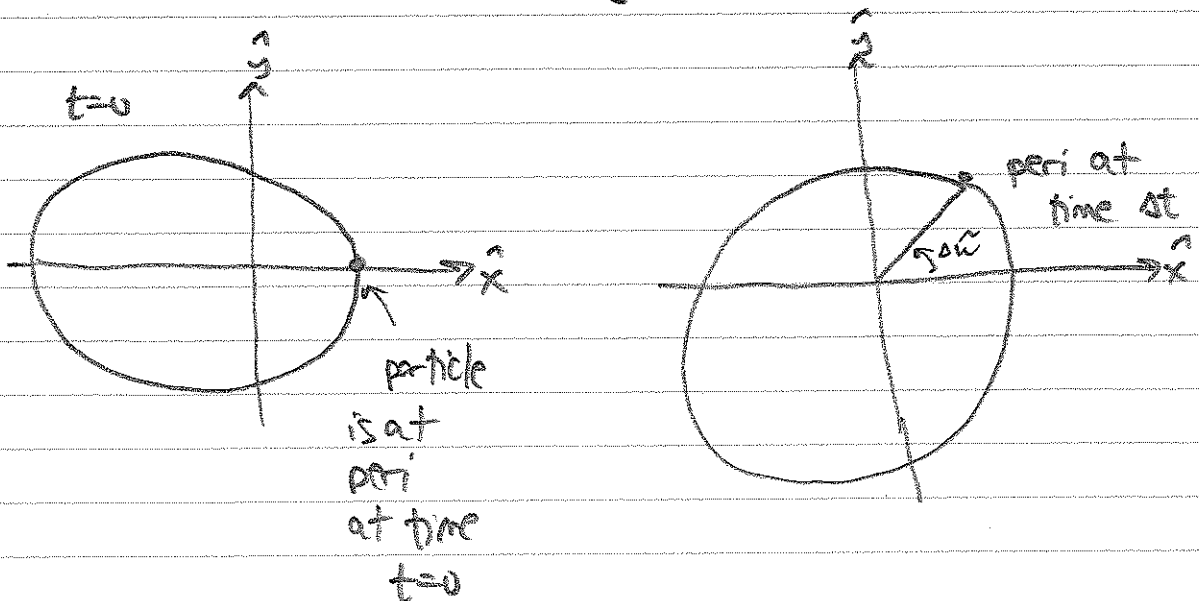 ŷ
t=0
x̂
particle
is at
peri
at time
t=0
ŷ
peri at
time Δt
Δω̃
x̂